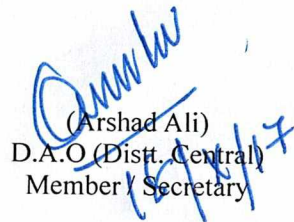 (Arshad Ali)
D.A.O (Distt. Central)
Member / Secretary